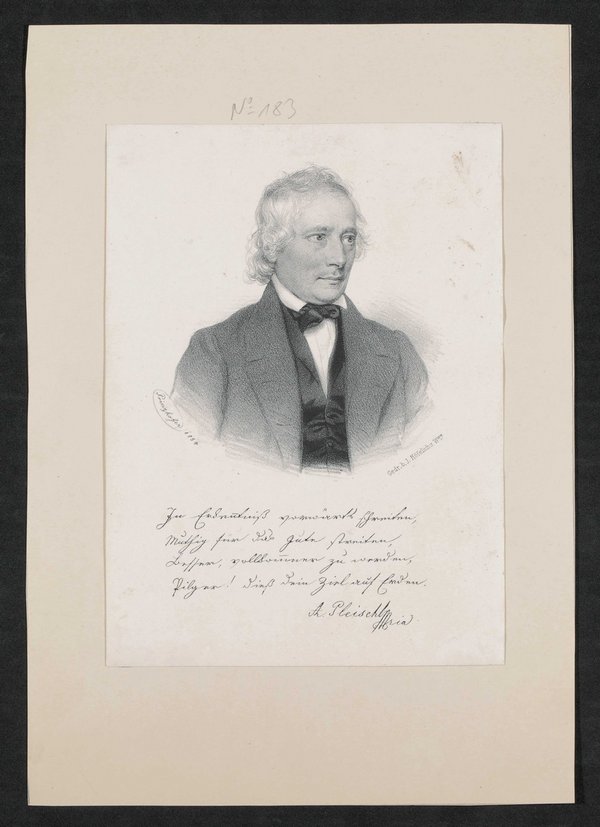 N° 183
Prinzhofer 1854
Gedr. b. J. Höfelich's Wwe
In Erkenntniß vorwärts schreiten,
Muthig für das Gute streiten,
Besser, vollkommner zu werden,
Pilger! dieß dein Ziel auf Erden.
A. Pleischl